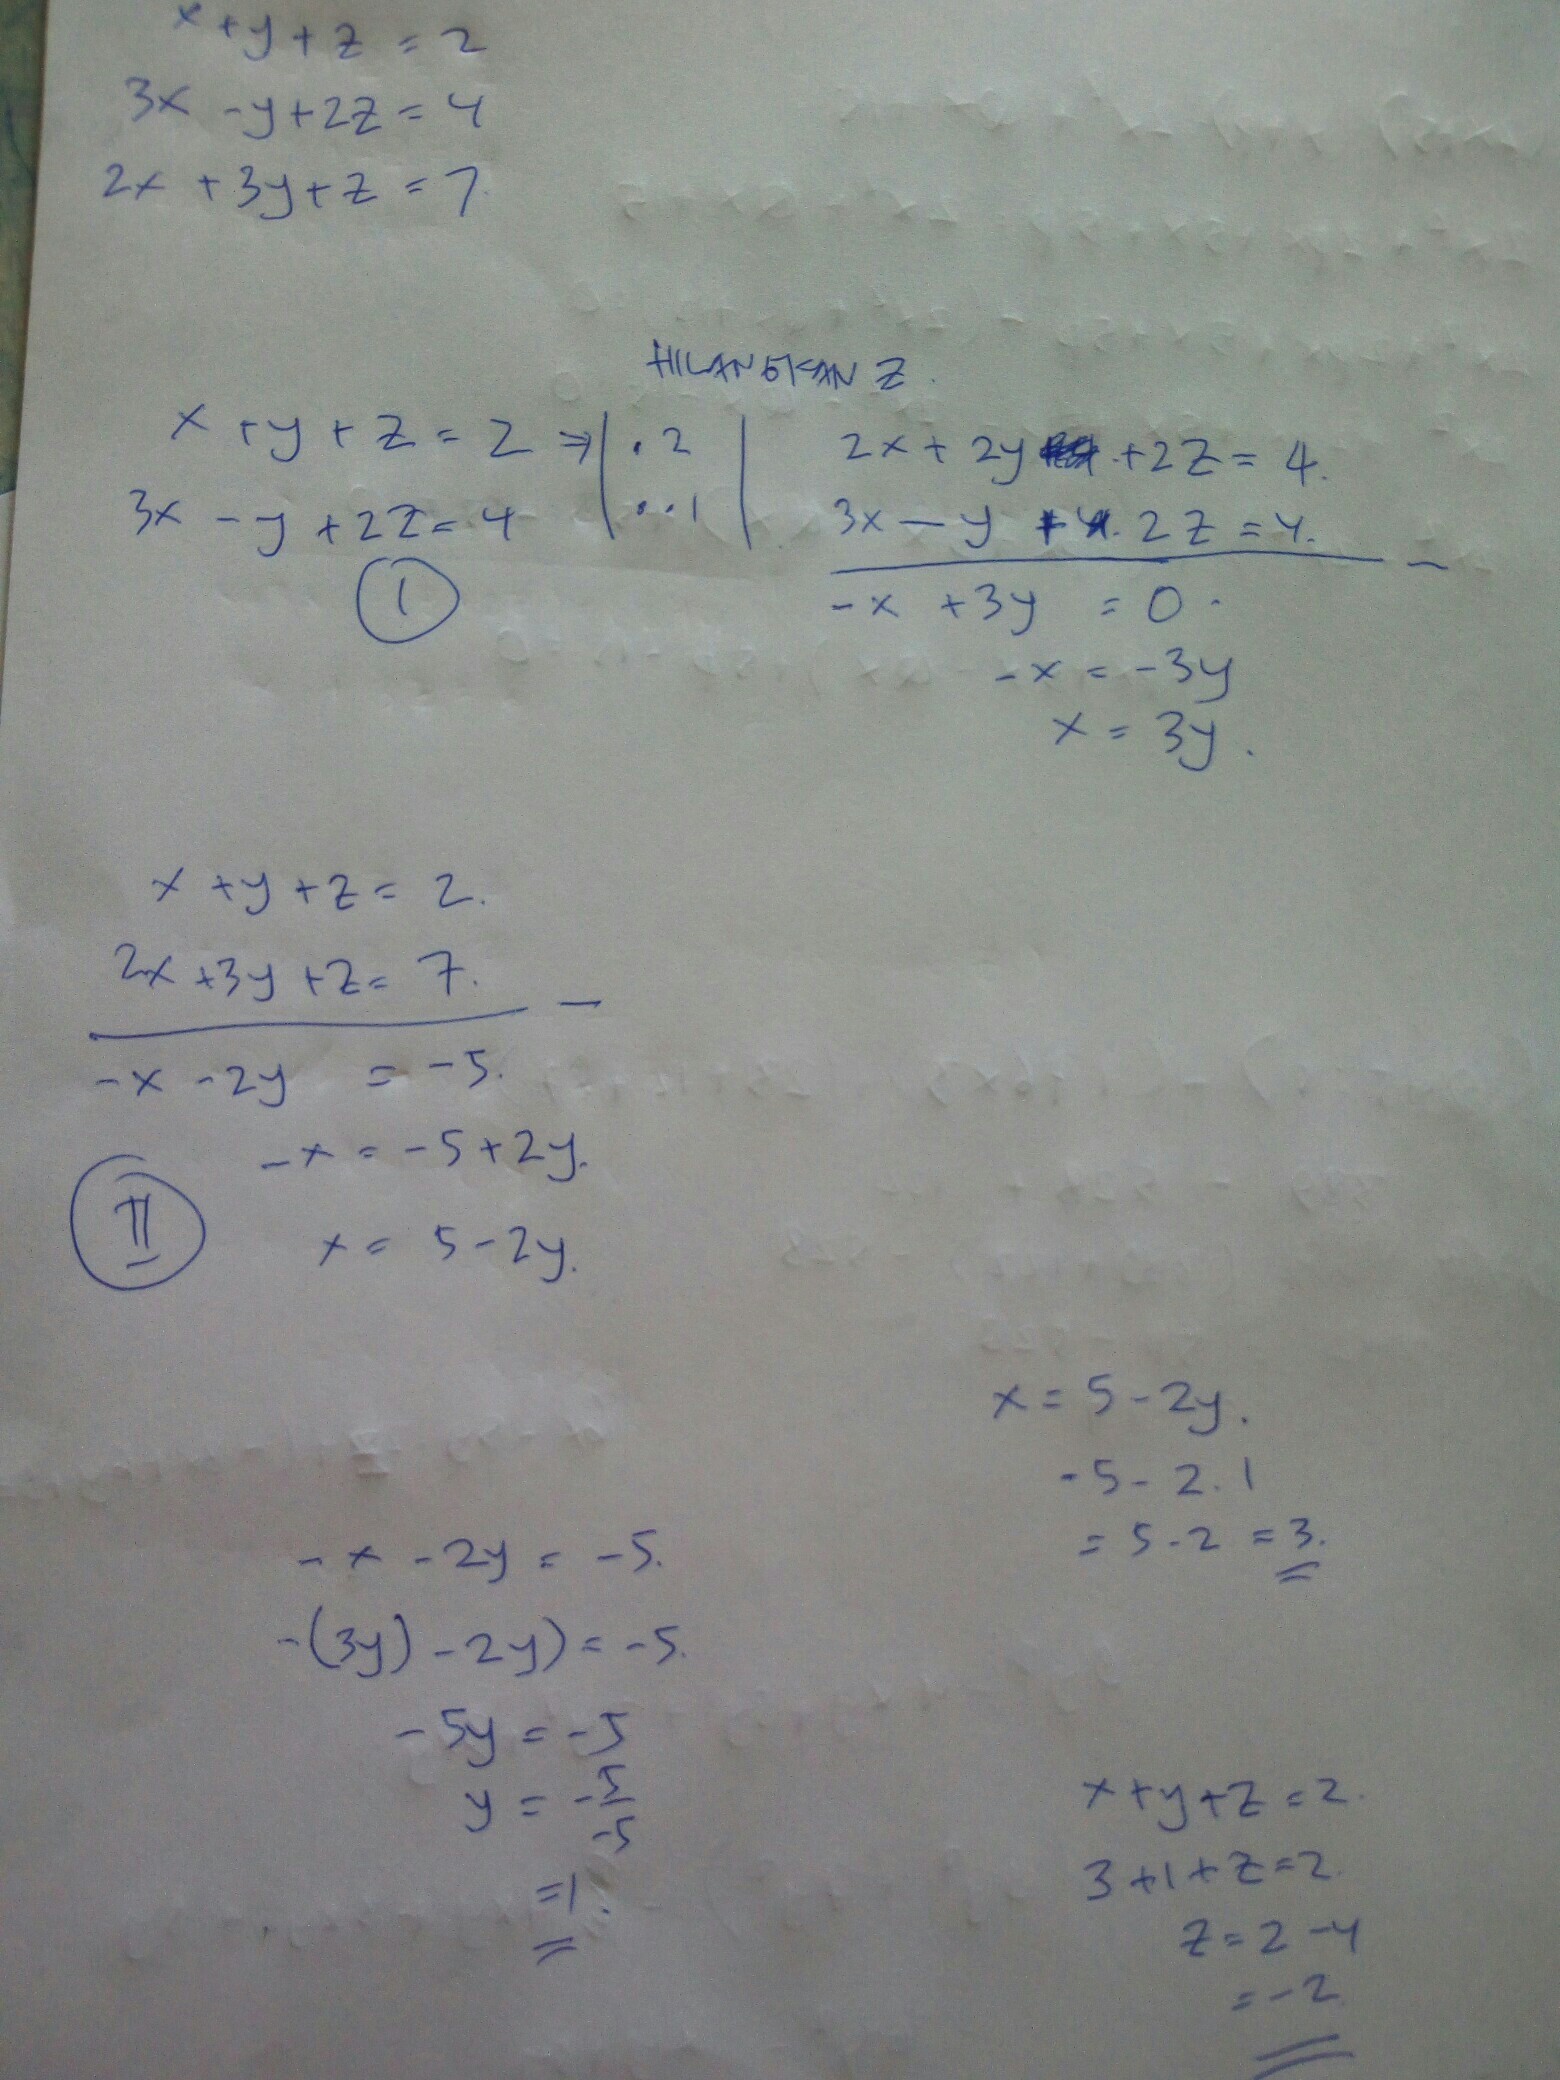 x + y + z = 2
3x - y + 2z = 4
2x + 3y + z = 7.
HILANGKAN Z.
x + y + z = 2 ⇒ | . 2 | 2x + 2y + 2z = 4.
3x - y + 2z = 4 | . . 1 | 3x - y + 2z = 4.
-
-x + 3y = 0.
1
-x = -3y
x = 3y.
x + y + z = 2.
2x + 3y + z = 7.
-
-x - 2y = -5.
-x = -5 + 2y.
II
x = 5 - 2y.
x = 5 - 2y.
- 5 - 2.1
= 5 - 2 = 3.
-x - 2y = -5.
-(3y) - 2y) = -5.
-5y = -5
y = -5/-5
= 1.
x + y + z = 2.
3 + 1 + z = 2.
z = 2 - 4
= -2